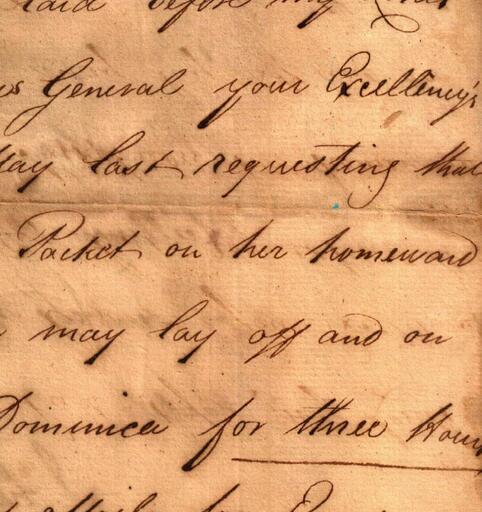 laid before my
General your Excellency's
May last requesting that
Packet on her homeward
may lay off and on
Dominica for three Hours